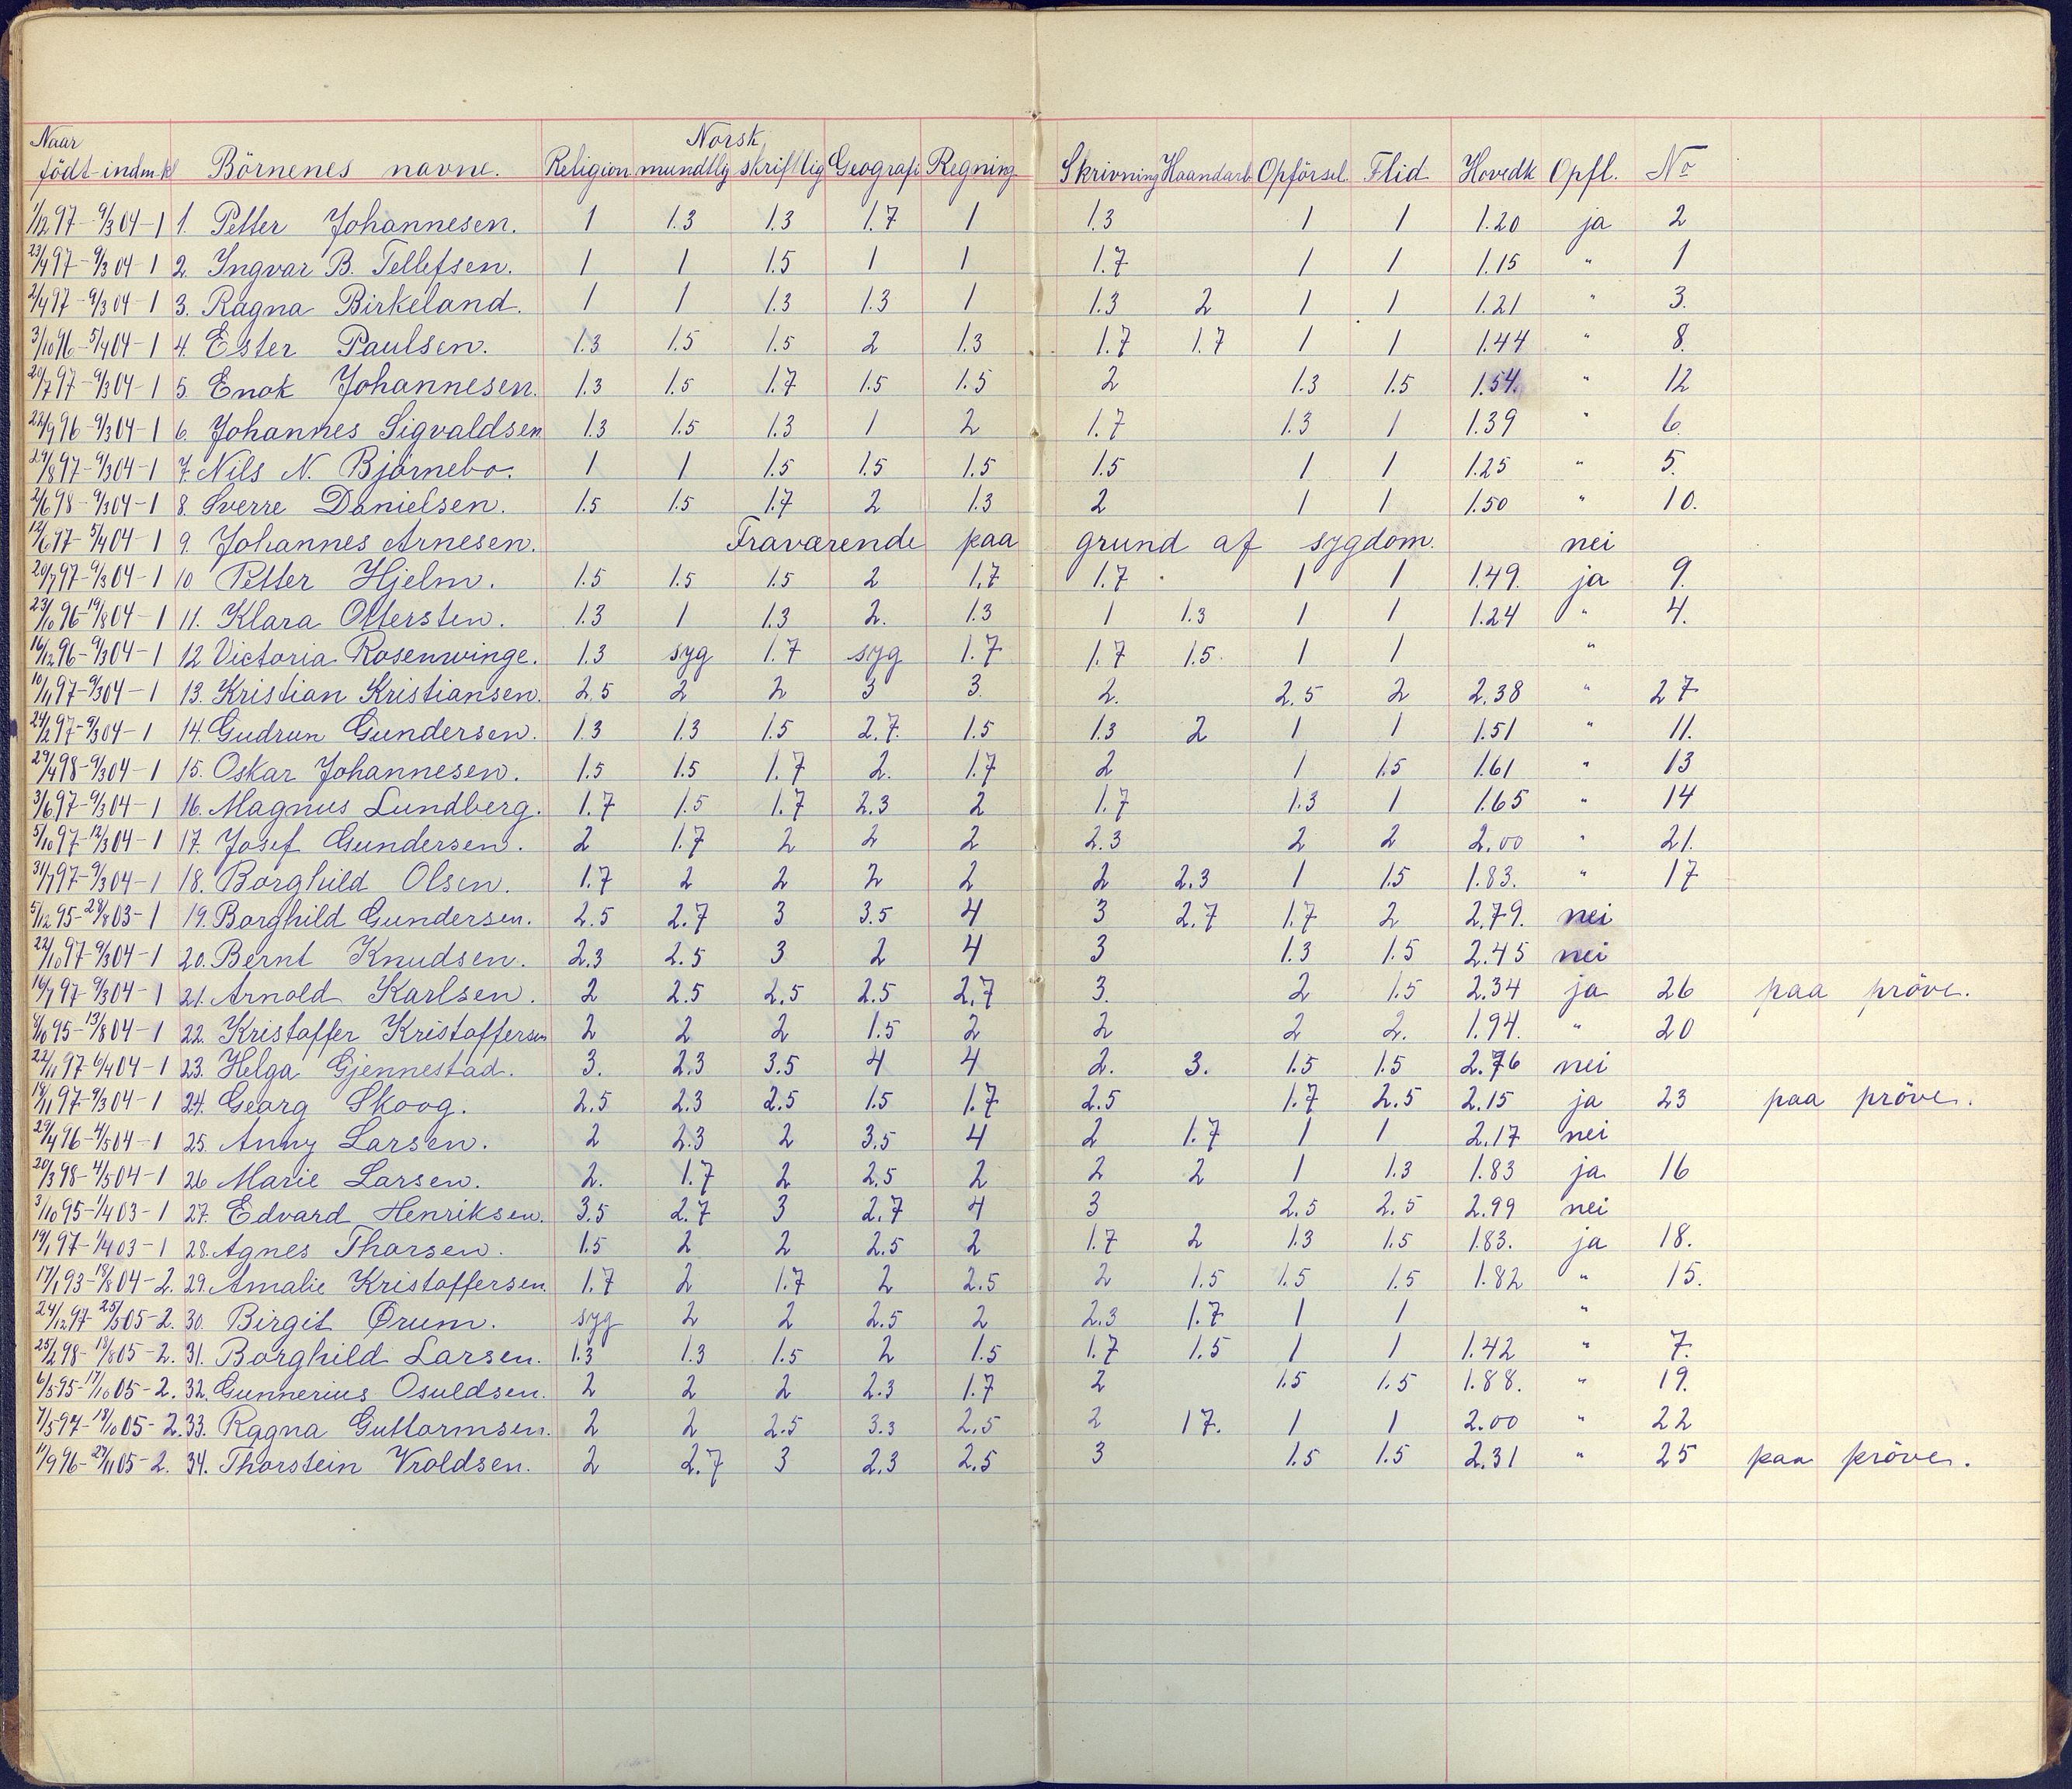 Naar Norsk
födt-indmk Börnenes navne. Religion mundtlig skriftlig Geografi Regning Skrivning Haandarb Opförsel. Flid Hovedk Opfl. No
1/12 97-9/3 04-1 1. Petter Johannesen. 1 1.3 1.3 1.7 1 1.3 1 1 1.20 ja 2
23/4 97-9/3 04-1 2. Ingvar B. Tellefsen. 1 1 1.5 1 1 1.7 1 1 1.15 " 1
2/4 97-9/3 04-1 3. Ragna Birkeland. 1 1 1.3 1.3 1 1.3 2 1 1 1.21 " 3.
3/10 96-5/4 04-1 4. Ester Paulsen. 1.3 1.5 1.5 2 1.3 1.7 1.7 1 1 1.44 " 8.
20/7 97-9/3 04-1 5. Enok Johannesen. 1.3 1.5 1.7 1.5 1.5 2 1.3 1.5 1.54. " 12
22/9 96-9/3 04-1 6. Johannes Sigvaldsen 1.3 1.5 1.3 1 2 1.7 1.3 1 1.39 " 6.
29/8 97-9/3 04-1 7. Nils N. Bjørnebo. 1 1 1.5 1.5 1.5 1.5 1 1 1.25 " 5.
2/6 98-9/3 04-1 8. Sverre Danielsen. 1.5 1.5 1.7 2 1.3 2 1 1 1.50 " 10.
12/6 97-5/4 04-1 9. Johannes Arnesen. Fraværende paa grund af sygdom. nei
20/7 97-9/3 04-1 10 Petter Hjelm. 1.5 1.5 1.5 2 1,7 1.7 1 1 1.49. ja 9.
23/10 96-19/8 04-1 11. Klara Ottersten. 1.3 1 1.3 2. 1.3 1 1.3 1 1 1.24 " 4.
16/12 96-9/3 04-1 12 Victoria Rosenwinge. 1.3 syg 1.7 syg 1.7 1.7 1.5. 1 1 "
10/11 97-9/3 04-1 13. Kristian Kristiansen. 2.5 2 2 3 3. 2. 2.5 2 2.38 " 27
24/2 97-9/3 04-1 14. Gudrun Gundersen. 1.3 1.3 1.5 2.7. 1.5 1.3 2 1 1 1.51 " 11.
29/4 98-9/3 04-1 15. Oskar Johannesen. 1.5 1.5 1.7 2. 1.7 2 1 1.5 1.61 " 13
3/6 97-9/3 04-1 16. Magnus Lundberg. 1.7 1.5 1.7 2.3 2 1.7 1.3 1 1.65 " 14
5/10 97-12/3 04-1 17. Josef Gundersen. 2 1.7 2 2 2 2.3 2 2 2.00 " 21.
31/7 97-9/3 04-1 18. Borghild Olsen. 1.7 2 2 2 2 2 2.3 1 1.5 1.83. " 17
5/12 95-28/8 03-1 19. Borghild Gundersen. 2.5 2.7 3 3.5 4 3 2.7 1.7 2 2.79. nei
22/10 97-9/3 04-1 20. Bernt Knudsen. 2.3 2.5 3 2 4 3 1.3 1.5 2.45 nei
16/7 97-9/3 04-1 21. Arnold Karlsen. 2 2.5 2.5 2.5 2,7 3. 2 1.5 2.34 ja 26 paa pröve.
8/10 95-13/8 04-1 22. Kristoffer Kristoffersen 2 2 2 1.5 2 2 2 2. 1.94. " 20
22/11 97-6/4 04-1 23. Helga Gjennestad. 3. 2.3 3.5 4 4 2. 3. 1.5 1.5 2.76 nei
18/11 97-9/3 04-1 24. Georg Skoog. 2.5 2.3 2.5 1.5 1.7 2.5 1.7 2.5 2.15 ja 23 paa pröve.
29/4 96-4/5 04-1 25. Anny Larsen. 2 2.3 2 3.5 4 2 1.7 1 1 2.17 nei
20/3 98-4/5 04-1 26 Marie Larsen. 2. 1.7 2 2.5 2 2 2 1 1.3 1.83 ja 16
3/10 95-1/4 03-1 27. Edvard Henriksen. 3.5 2.7 3 2.7 4 3 2.5 2.5 2.99 nei
19/1 97-1/4 03-1 28. Agnes Thorsen. 1.5 2 2 2.5 2 1.7 2 1.3 1.5 1.83. ja 18.
17/1 93-18/8 04-2. 29. Amalie Kristoffersen. 1.7 2 1.7 2 2.5 2 1.5 1.5 1.5 1.82 " 15.
24/12 97-25/5 05-2. 30. Birgit Ørum. syg 2 2 2.5 2 2.3 1.7 1 1 "
25/2 98-18/8 05-2. 31. Borghild Larsen. 1.3 1.3 1.5 2 1.5 1.7 1.5 1 1 1.42 " 7.
6/5 95-17/10 05-2. 32. Gunnerius Osuldsen. 2 2 2 2.3 1.7 2 1.5 1.5 1.88. " 19.
7/5 97-18/10 05-2. 33. Ragna Guttormsen. 2 2 2.5 3.3 2.5 2 17. 1 1 2.00 " 22
11/9 96-29/11 05-2. 34. Thorstein Vroldsen. 2 2.7 3 2.3 2.5 3 1.5 1.5 2.31 " 25 paa pröve.